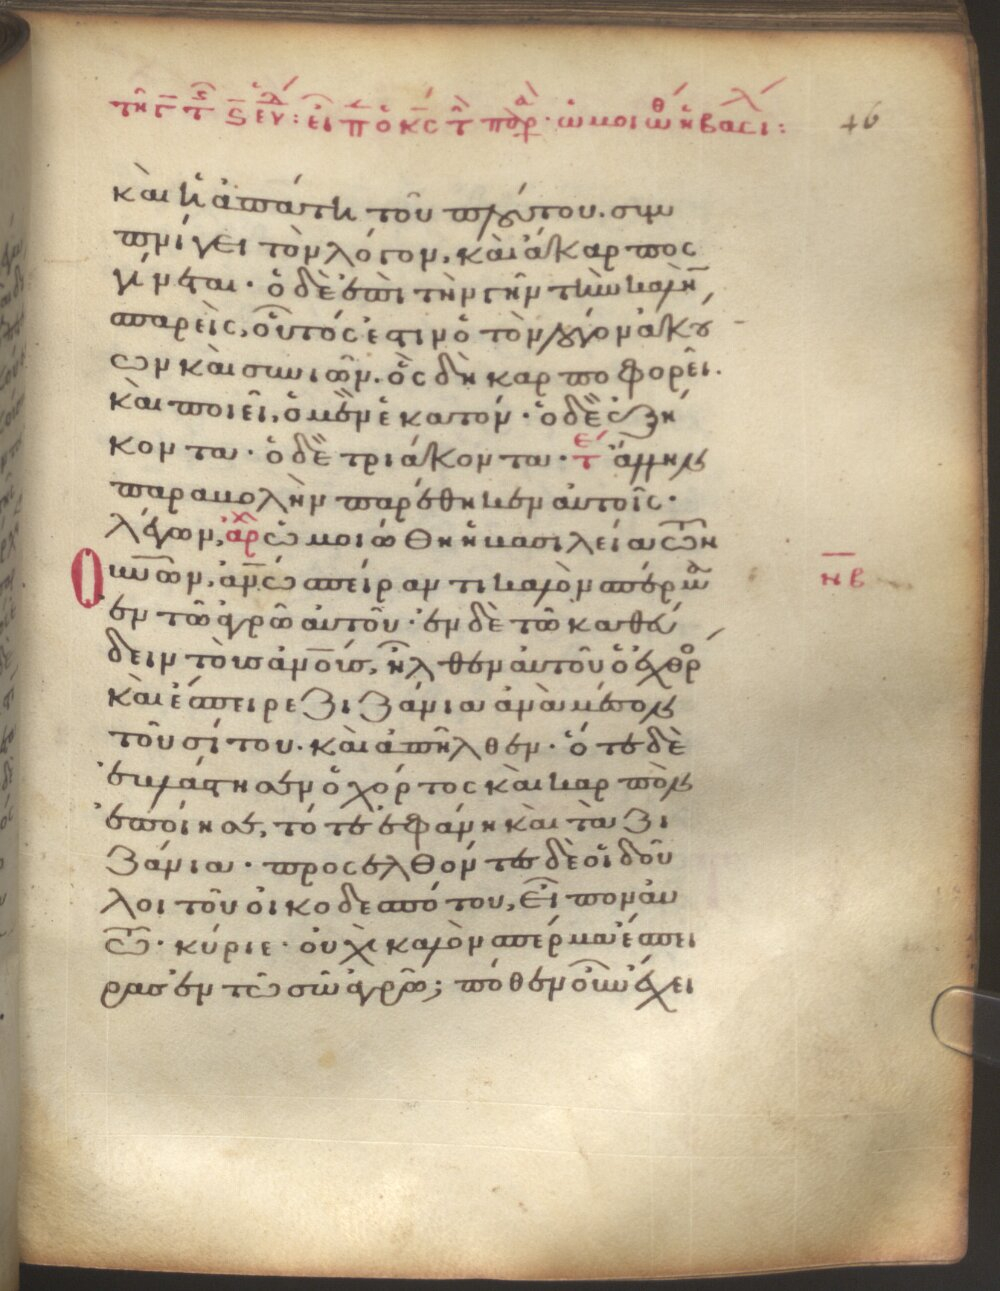 τῆ γ τ ϛ ευ: εἶ π ὁ κς τ παρ· ὡμοιωθ ἡ βασι: 46
καὶ ἡ ἀπάτη τοῦ πλούτου. συμ
πνίγει τὸν λόγον, καὶ ἄκαρπος
γίνεται· ὁ δὲ ἐπὶ τὴν γῆν τὴν καλὴν
σπαρεὶς, οὗτός ἐστιν ὁ τὸν λόγον ἀκού
ων καὶ συνιῶν. ὃς δὴ καρποφορεῖ.
καὶ ποιεῖ, ὁ μὲν ἑκατὸν· ὁ δὲ ἑξή
κοντα· ὁ δὲ τριάκοντα· τε ἄλλην
παραβολὴν παρέθηκεν αὐτοῖς·
λέγων, αρχ ὡμοιώθη ἡ βασιλεία τῶν
οὐνῶν, ἀνω σπείραντι καλὸν σπέρμα
ἐν τῶ ἀγρῶ αὐτοῦ· ἐν δὲ τῶ καθεύ
δειν τοὺς ἀνους, ἦλθεν αὐτοῦ ὁ ἐχθρὸς
καὶ ἔσπειρε ζιζάνια ἀνὰ μέσον
τοῦ σίτου. καὶ ἀπῆλθεν· ὅτε δὲ
ἐβλάστησεν ὁ χόρτος καὶ καρπὸν
ἐποίησε, τότε ἐφάνη καὶ τὰ ζι
ζάνια· προσελθόντες δὲ οἱ δοῦ
λοι τοῦ οἰκοδεσπότου, εἶπον αὐ
τῶ· κύριε· οὐχὶ καλὸν σπέρμα ἔσπει
ρας ἐν τῶ σῶ ἀγρῶ; πόθεν οὖν ἔχει
νβ